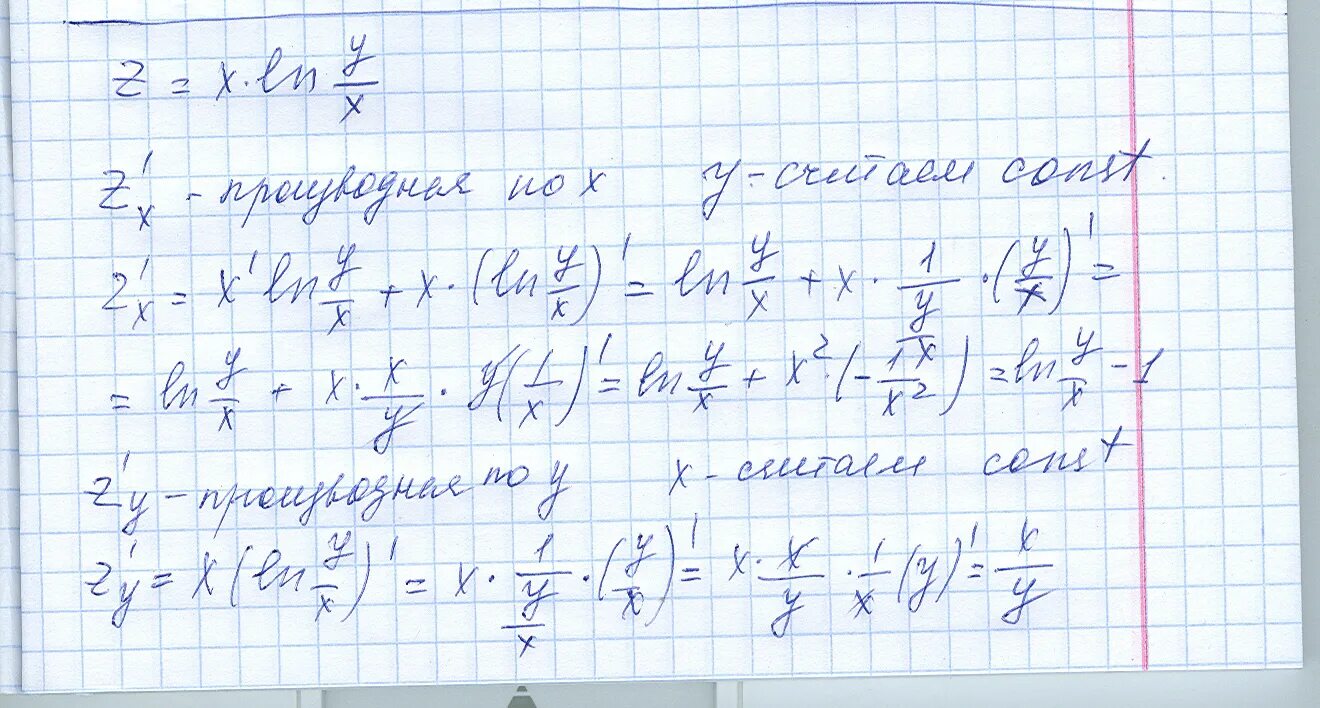 z = x·ln y/x
z'x - производная по x y - считаем const.
z'x = x' ln y/x + x·(ln y/x)' = ln y/x + x · 1/(y/x) · (y/x)' =
= ln y/x + x · x/y · y(1/x)' = ln y/x + x² · (-1/x²) = ln y/x - 1
z'y - производная по y x - считаем const
z'y = x(ln y/x)' = x · 1/(y/x) · (y/x)' = x · x/y · 1/x (y)' = x/y